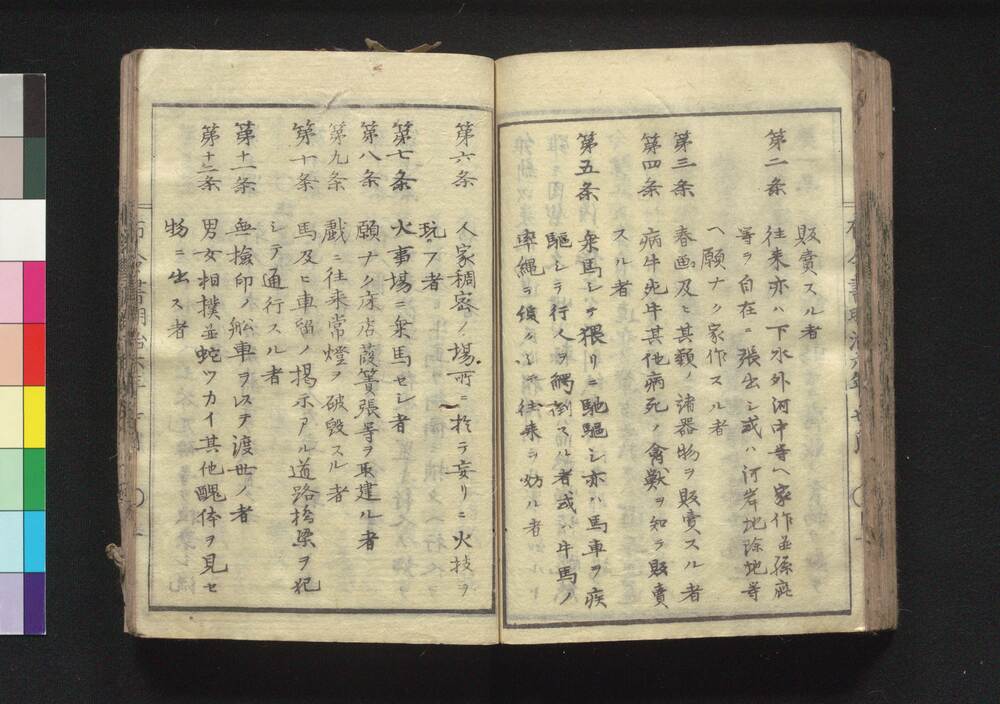 販賣スル者
第二条 往来亦ハ下水外河中等ヘ家作並孫庇
等ヲ自在ニ張出シ或ハ河岸地除地等
ヘ願ナク家作スル者
第三条 春画及ヒ其類ノ諸器物ヲ販賣スル者
第四条 病牛死牛其他病死ノ禽獣ヲ知ラ販賣
スル者
第五条 乗馬シテ猥リニ馳驅シ亦ハ馬車ヲ疾
驅シテ行人ヲ觸倒スル者或ハ牛馬ノ
牽縄ヲ俊ノシテ往来ヲ妨ル者
第六条 人家稠密ノ場所ニ於テ妄リニ火技ヲ
玩フ者
第七条 火事場ニ乗馬セシ者
第八条 願ナク床店葭簀張等ヲ取建ル者
第九条 戯ニ往来常燈ヲ破毀スル者
第十条 馬及ヒ車留ノ掲示アル道路橋梁ヲ犯
シテ通行スル者
第十一条 無撿印ノ舩車ヲ以テ渡世ノ者
第十二条 男女相撲並蛇ツカイ其他醜体ヲ見セ
物ニ出ス者